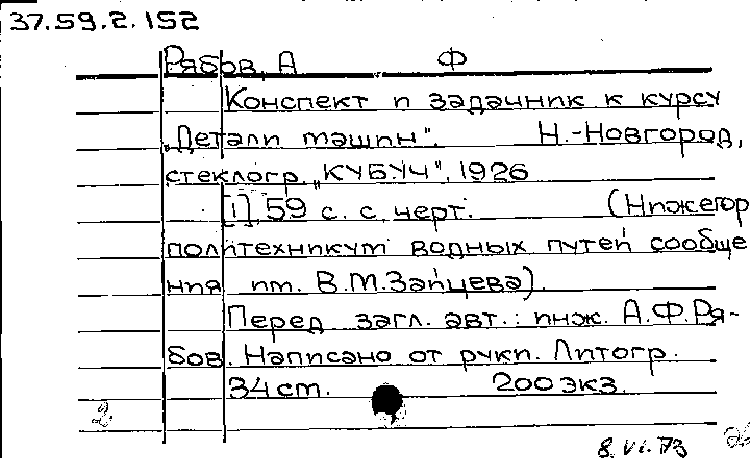 37.59.2.152
Рябов, А Ф
Конспект и задачник к курсу
„Детали машин". Н.-Новгород,
стеклогр. „КУБУЧ", 1926
[1], 59 с. с черт. (Нижегор
политехникум водных путей сообще
ния им. В.М.Зайцева).
Перед загл. авт.: инж. А.Ф.Ря-
бов. Написано от руки. Литогр.
34 cm. 200 экз.
2
8.VI.73